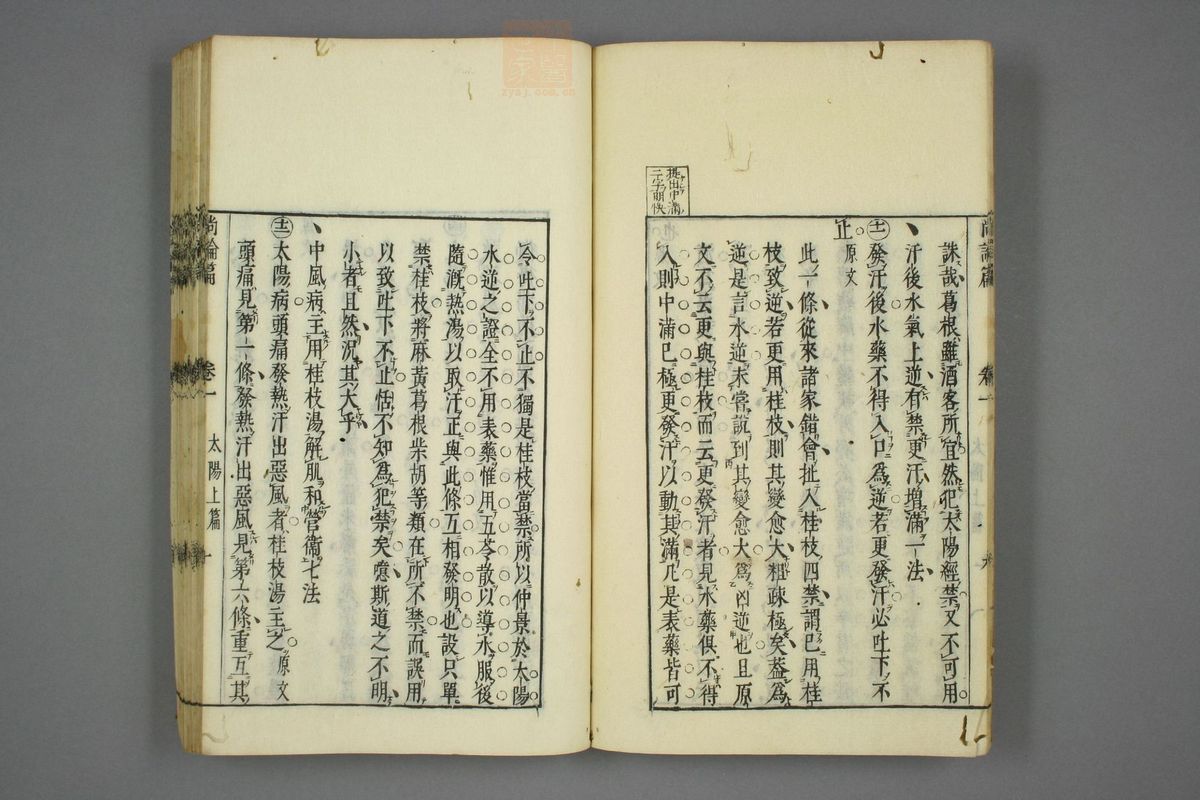 提出中滿
三字明快
誅哉葛根雖酒客所宜然犯太陽經禁又不可用
汗後水氣上逆有禁更汗增滿一法
發汗後水藥不得入口爲逆若更發汗必吐下不
止原文
此一條從來諸家錯會扯入桂枝四禁謂已用桂
枝致逆若更用桂枝則其變愈大粗疎極矣蓋爲
逆是言水逆未嘗說到其變愈大爲凶逆也且原
文不云更與桂枝而云更發汗者見水藥俱不得
入則中滿已極更發汗以動其滿凡是表藥皆可
令吐下不止不獨是桂枝當禁所以仲景於太陽
水逆之證全不用表藥惟用五苓散以導水服後
隨漑熱湯以取汗正與此條互相發明也設只單
禁桂枝將麻黃葛根柴胡等類在所不禁而誤用
以致吐下不止恬不知爲犯禁矣噫斯道之不明
小者且然況其大乎
中風病主用桂枝湯解肌和營衞七法
太陽病頭痛發熱汗出惡風者桂枝湯主之原文
頭痛見第一條發熱汗出惡風見第六條重互其
尚論篇 卷一 太陽上篇
zysj.com.cn